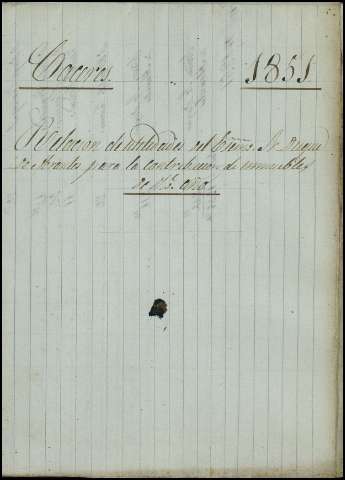 Caceres. 1851.
Relacion de utilidades del Exmo. Sr. Duque
de Abrantes para la contribucion de inmuebles
de dho. año.